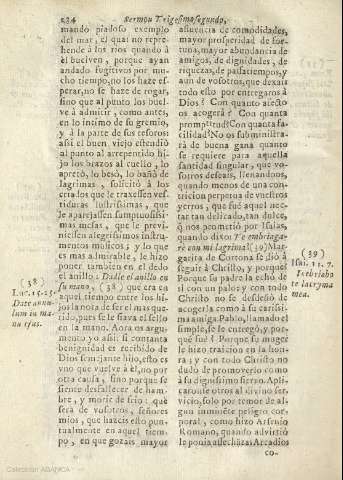 224 Sermon Trigesimosegundo,
mando piadoso exemplo
del mar, el qual no repre-
hende à los rios quando à
èl buelven, porque ayan
andado fugitivos por mu-
cho tiempo, no les haze es-
perar, no se haze de rogar,
sino que al punto los buel-
ve à admitir, como antes,
en lo intimo de su gremio,
y à la parte de sus tesoros:
assi el buen viejo estendiò
al punto al arrepentido hi-
jo los brazos al cuello, le
apretò, lo besò, lo bañò de
lagrimas, solicitò à los
criados que le traxessen ves-
tiduras lustrisimas, que
le aparejassen sumptuosissi-
mas mesas, que le previ-
niessen alegrissimos instru-
mentos musicos; y lo que
es mas admirable, le hizo
poner tambien en el dedo
el anillo: Dadle el anillo en
su mano, (38) que era en
aquel tiempo entre los hi-
jos la nota de ser el mas que-
rido, pues se le fiava el sello
en la mano. Aora os argu-
mento yo assi: si contanta
benignidad es recibido de
Dios semejante hijo, esto es
vno que vuelve à èl, no por
otra causa, sino porque se
siente desfallecer de ham-
bre, y morir de frio: què
serà de vosotros, señores
mios, que hazeis esto pun-
tualmente en aquel tiem-
po, en que gozais mayor
(38)
Luc. 15.25.
Date annu-
lum in ma-
nu ejus.
afluencia de comodidades,
mayor prosperidad de for-
tuna, mayor abundancia de
amigos, de dignidades, de
riquezas, de passatiempos, y
aun de vosotros, que dexais
todo esto por entregaros à
Dios? Con quanto afecto
os acogerà? Con quanta
promptitud? Con quanta fa-
cilidad? No os subministra-
rà de buena gana quanto
se requiere para aquella
santidad singular, que vo-
sotros deseais, llenandoos,
quando menos de una con-
tricion perpetua de vuestros
yerros, que fuè aquel nec-
tar tan delicado, tan dulce,
q̃ nos prometiò por Isaias,
quando dixo: Te embriaga-
rè con mi lagrima? (39) Mar-
garita de Cortona se diò à
seguir à Christo, y porquè?
Porque su padre la echò de
sì con un palo: y con todo
Christo no se desdeñò de
acogerla como à su carissi-
ma amiga. Pablo, llamado el
simple, se le entregò, y por-
què fuè? Porque su muger
le hizo traicion en la hon-
ra; y con todo Christo no
dudò de promoverlo como
à su dignissimo siervo. Apli-
caronse otros al divino ser-
vicio, solo por temor de al-
gun inminente peligro cor-
poral, como hizo Arsenio
Romano, quando advirtiò
le ponia assechãzas Arcadio
co-
(39)
Isai. 11. 7.
Inebriabo
te lacryma
mea.
Colección ABANCA